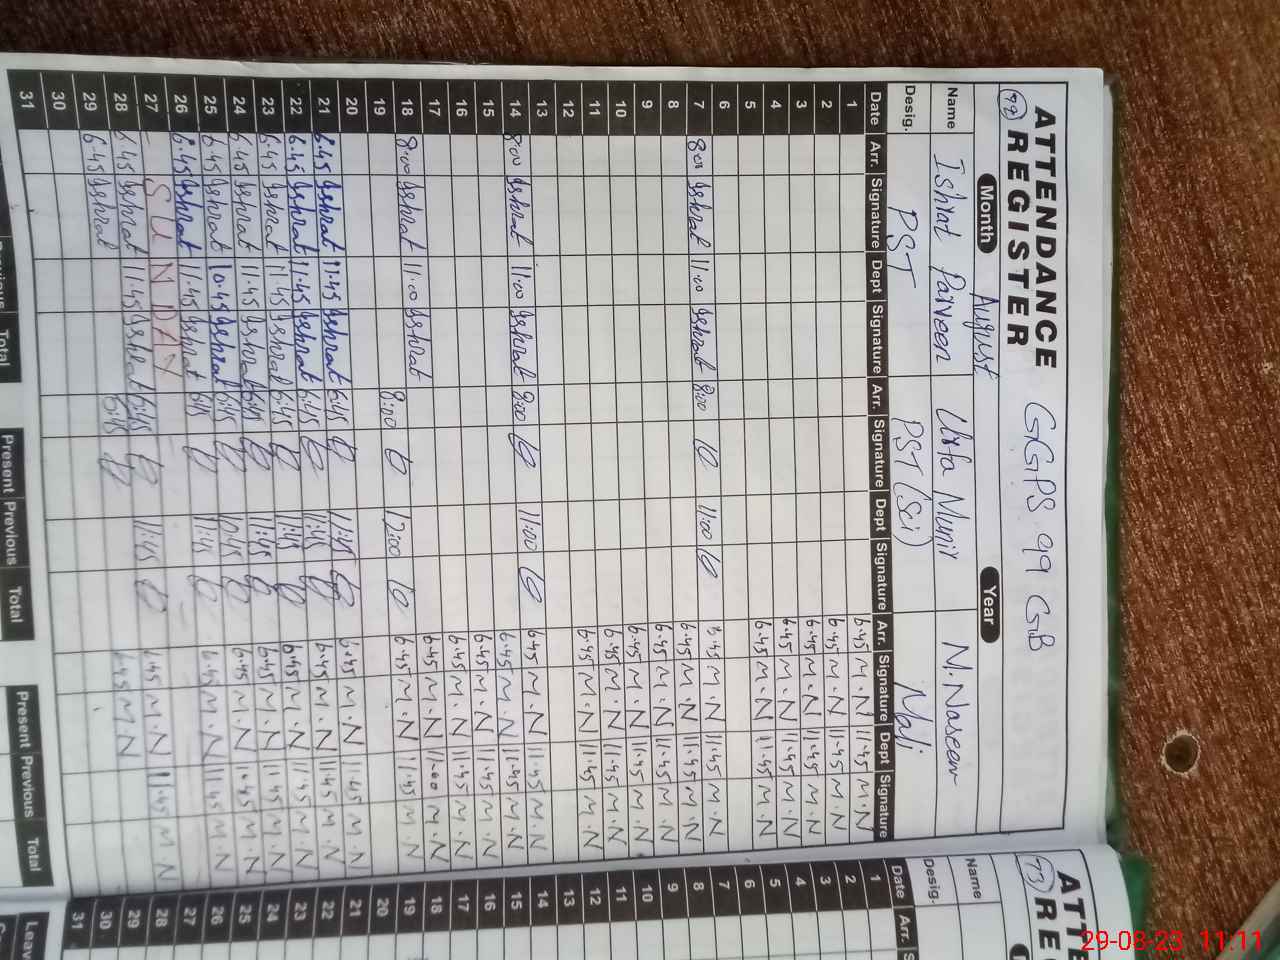 ATTENDANCE GGPS 99 GB
72 REGISTER
Month August Year
Name Ishrat Parveen Urfa Munir M. Naseem
Desig. PST PST (Sci) Mali
Date Arr. Signature Dept Signature Arr. Signature Dept Signature Arr. Signature Dept Signature
1 6.45 M.N 11.45 M.N
2 6.45 M.N 11.45 M.N
3 6.45 M.N 11.45 M.N
4 6.45 M.N 11.45 M.N
5 6.45 M.N 11.45 M.N
6
7 8:00 Ishrat 11:00 Ishrat 8:00 11:00 6.45 M.N 11.45 M.N
8 6.45 M.N 11.45 M.N
9 6.45 M.N 11.45 M.N
10 6.45 M.N 11.45 M.N
11 6.45 M.N 11.45 M.N
12 6.45 M.N 11.45 M.N
13
14 8:00 Ishrat 11:00 Ishrat 8:00 11:00 6.45 M.N 11.45 M.N
15 6.45 M.N 11.45 M.N
16 6.45 M.N 11.45 M.N
17 6.45 M.N 11.45 M.N
18 8:00 Ishrat 11:00 Ishrat 6.45 M.N 11.00 M.N
19 8:00 12:00 6.45 M.N 11.45 M.N
20
21 6.45 Ishrat 11.45 Ishrat 6:45 11:45 6.45 M.N 11.45 M.N
22 6.45 Ishrat 11.45 Ishrat 6:45 11:45 6.45 M.N 11.45 M.N
23 6.45 Ishrat 11.45 Ishrat 6:45 11:45 6.45 M.N 11.45 M.N
24 6.45 Ishrat 11.45 Ishrat 6:45 11:45 6.45 M.N 11.45 M.N
25 6.45 Ishrat 10.45 Ishrat 6:45 10:45 6.45 M.N M.N
26 6.45 Ishrat 11.45 Ishrat 6:45 11:45 6.45 M.N 11.45 M.N
27 SUNDAY
28 6.45 Ishrat 11.45 Ishrat 6:45 11:45 6.45 M.N 11.45 M.N
29 6.45 Ishrat 6:45 6.45 M.N
30
31
Previous Total Present Previous Total Present Previous Total
73
Name
Desig.
Date Arr.
1
2
3
4
5
6
7
8
9
10
11
12
13
14
15
16
17
18
19
20
21
22
23
24
25
26
27
28
29
30
31
29-08-23 11:11